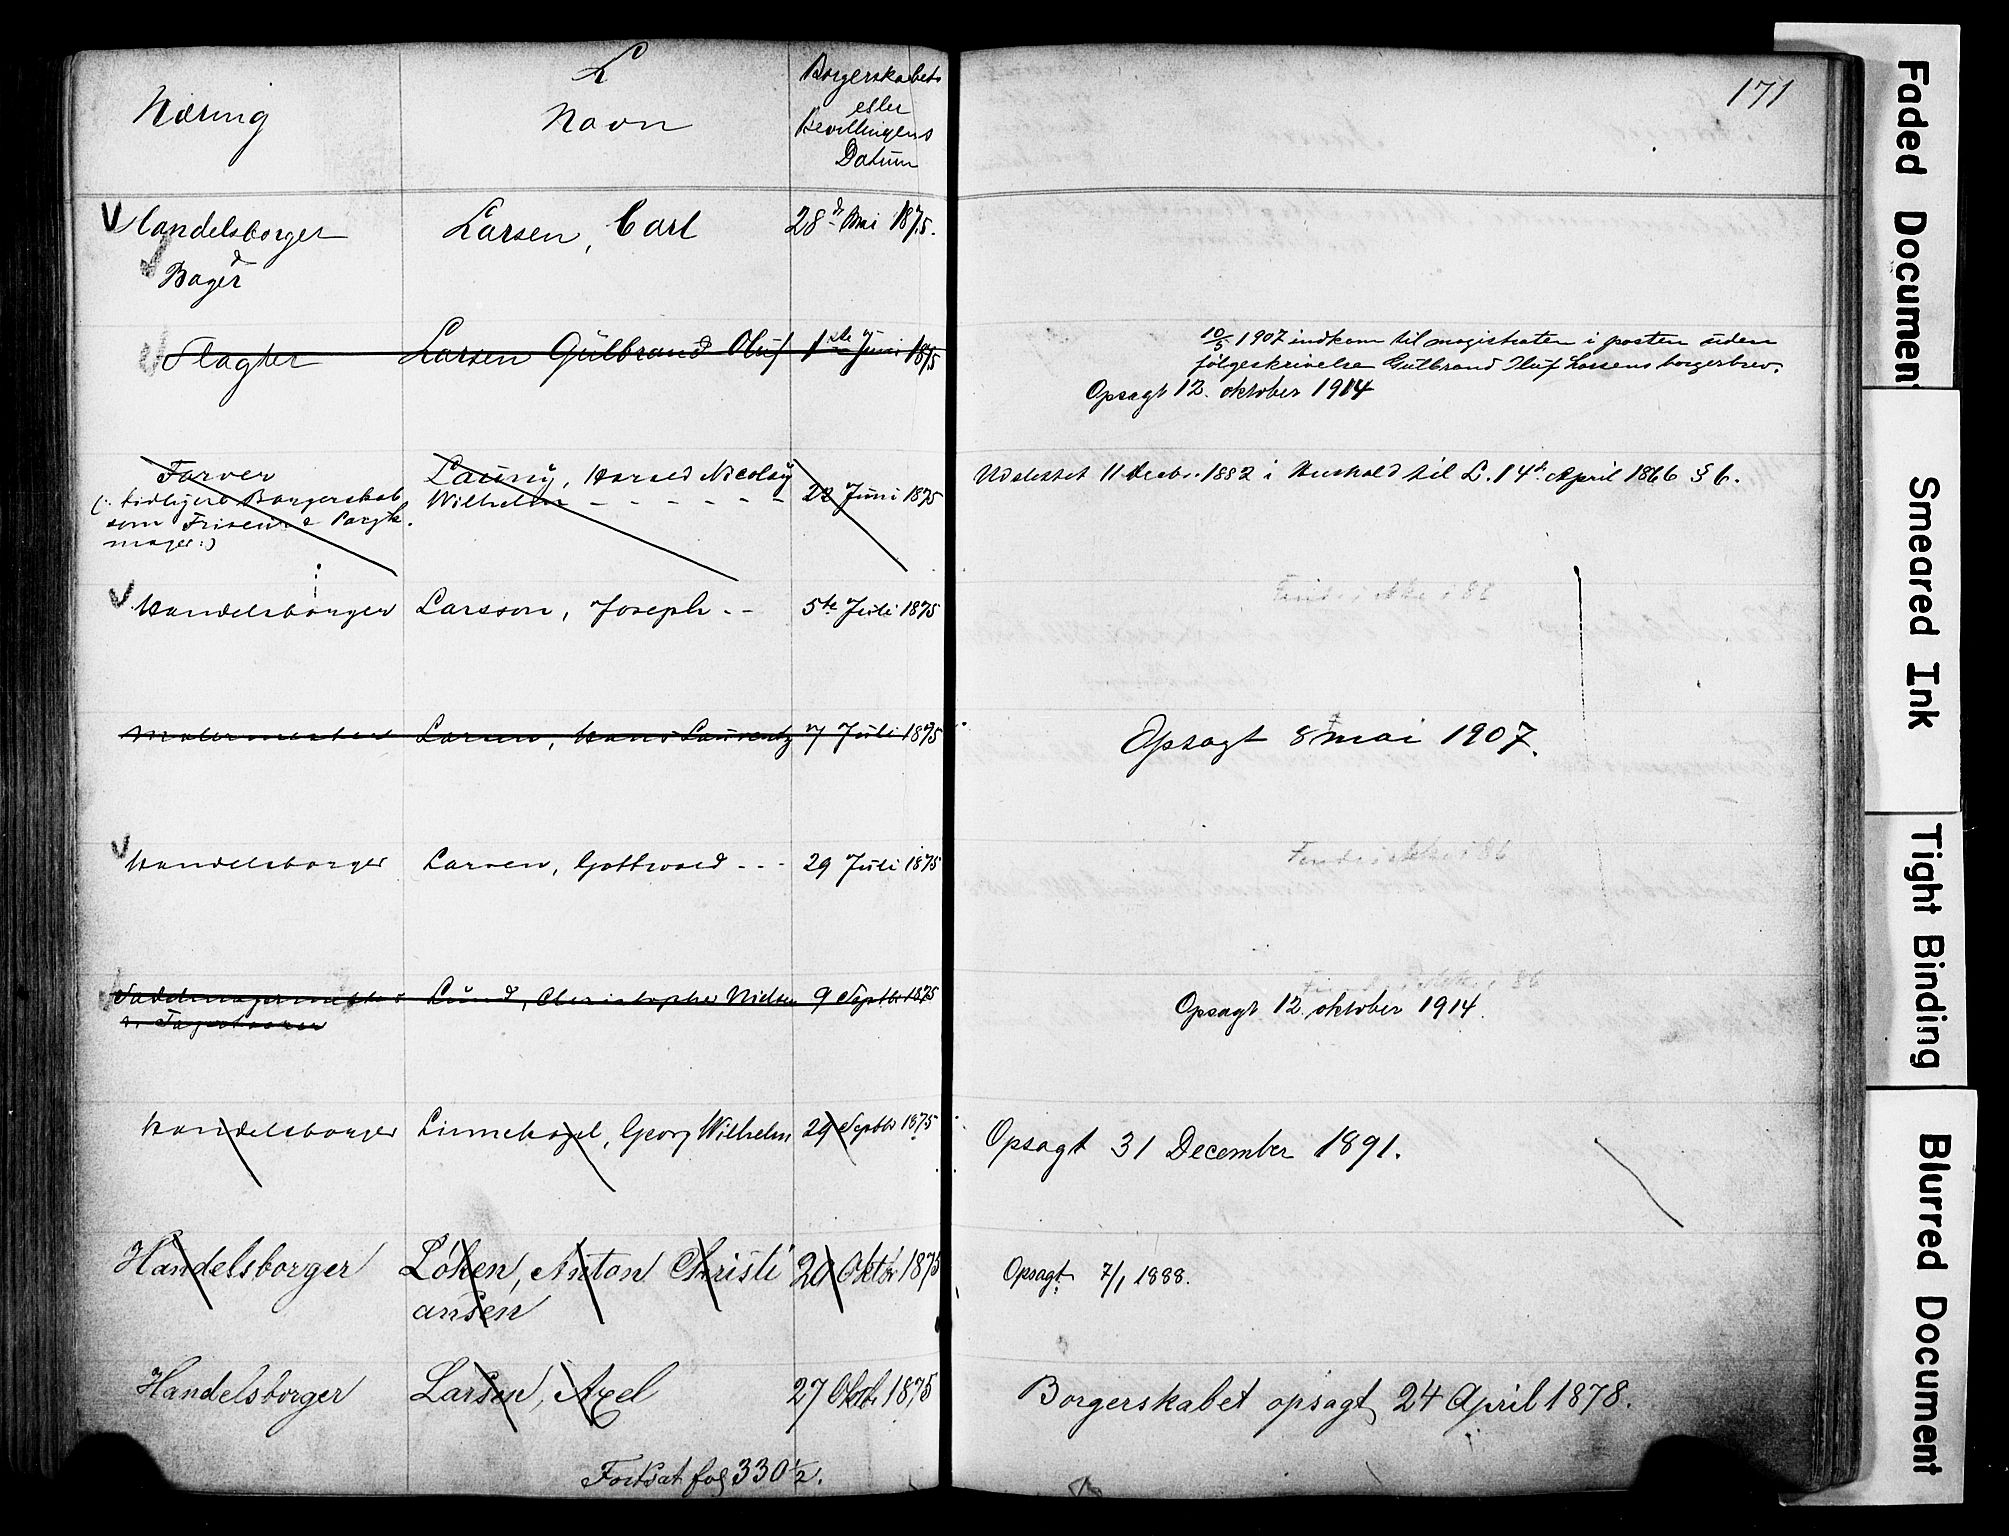 L
Næring
Navn
Borgerskabets
eller
Bevillingens
Datum
171
Handelsborger
Bager
Larsen, Carl
28 Mai 1875.
Slagter
Larsen Gulbrand Oluf
1ste Juni 1875
10/5 1907 indkom til magistraten i posten uden
følgeskrivelse Gulbrand Oluf Larsens borgerbrev.
Opsagt 12. oktober 1914
Farver
(: tidligere Borgerskab
som Friseur &
mager:)
Harald Nicolay
Wilhelm - - - - - -
22 Juni 1875
Udslettet 11 Decbr. 1882 i Henhold til L. 14 April 1866 § 6.
Handelsborger
Larsson, Joseph - -
5te Juli 1875
Malermester
Larsen, Hans Laurentz
7 Juli 1875
Opsagt 8 mai 1907.
Handelsborger
Larsen, Gottwald - - -
29 Juli 1875
Sadelmagermester
& Tapetserer
Lund, Christopher Nielsen
9 Septbr 1875
Opsagt 12. oktober 1914.
Handelsborger
Linnekogel, Georg Wilhelm
29 Septbr 1875
Opsagt 31 December 1891.
Handelsborger
Løken, Anton Christi
ansen
20 Oktbr 1875
Opsagt 7/1 1888.
Handelsborger
Larsen, Axel
27 Oktbr 1875
Borgerskabet opsagt 24 April 1878.
Fortsat fol 330 1/2.
Faded Document
Smeared Ink
Tight Binding
Blurred Document